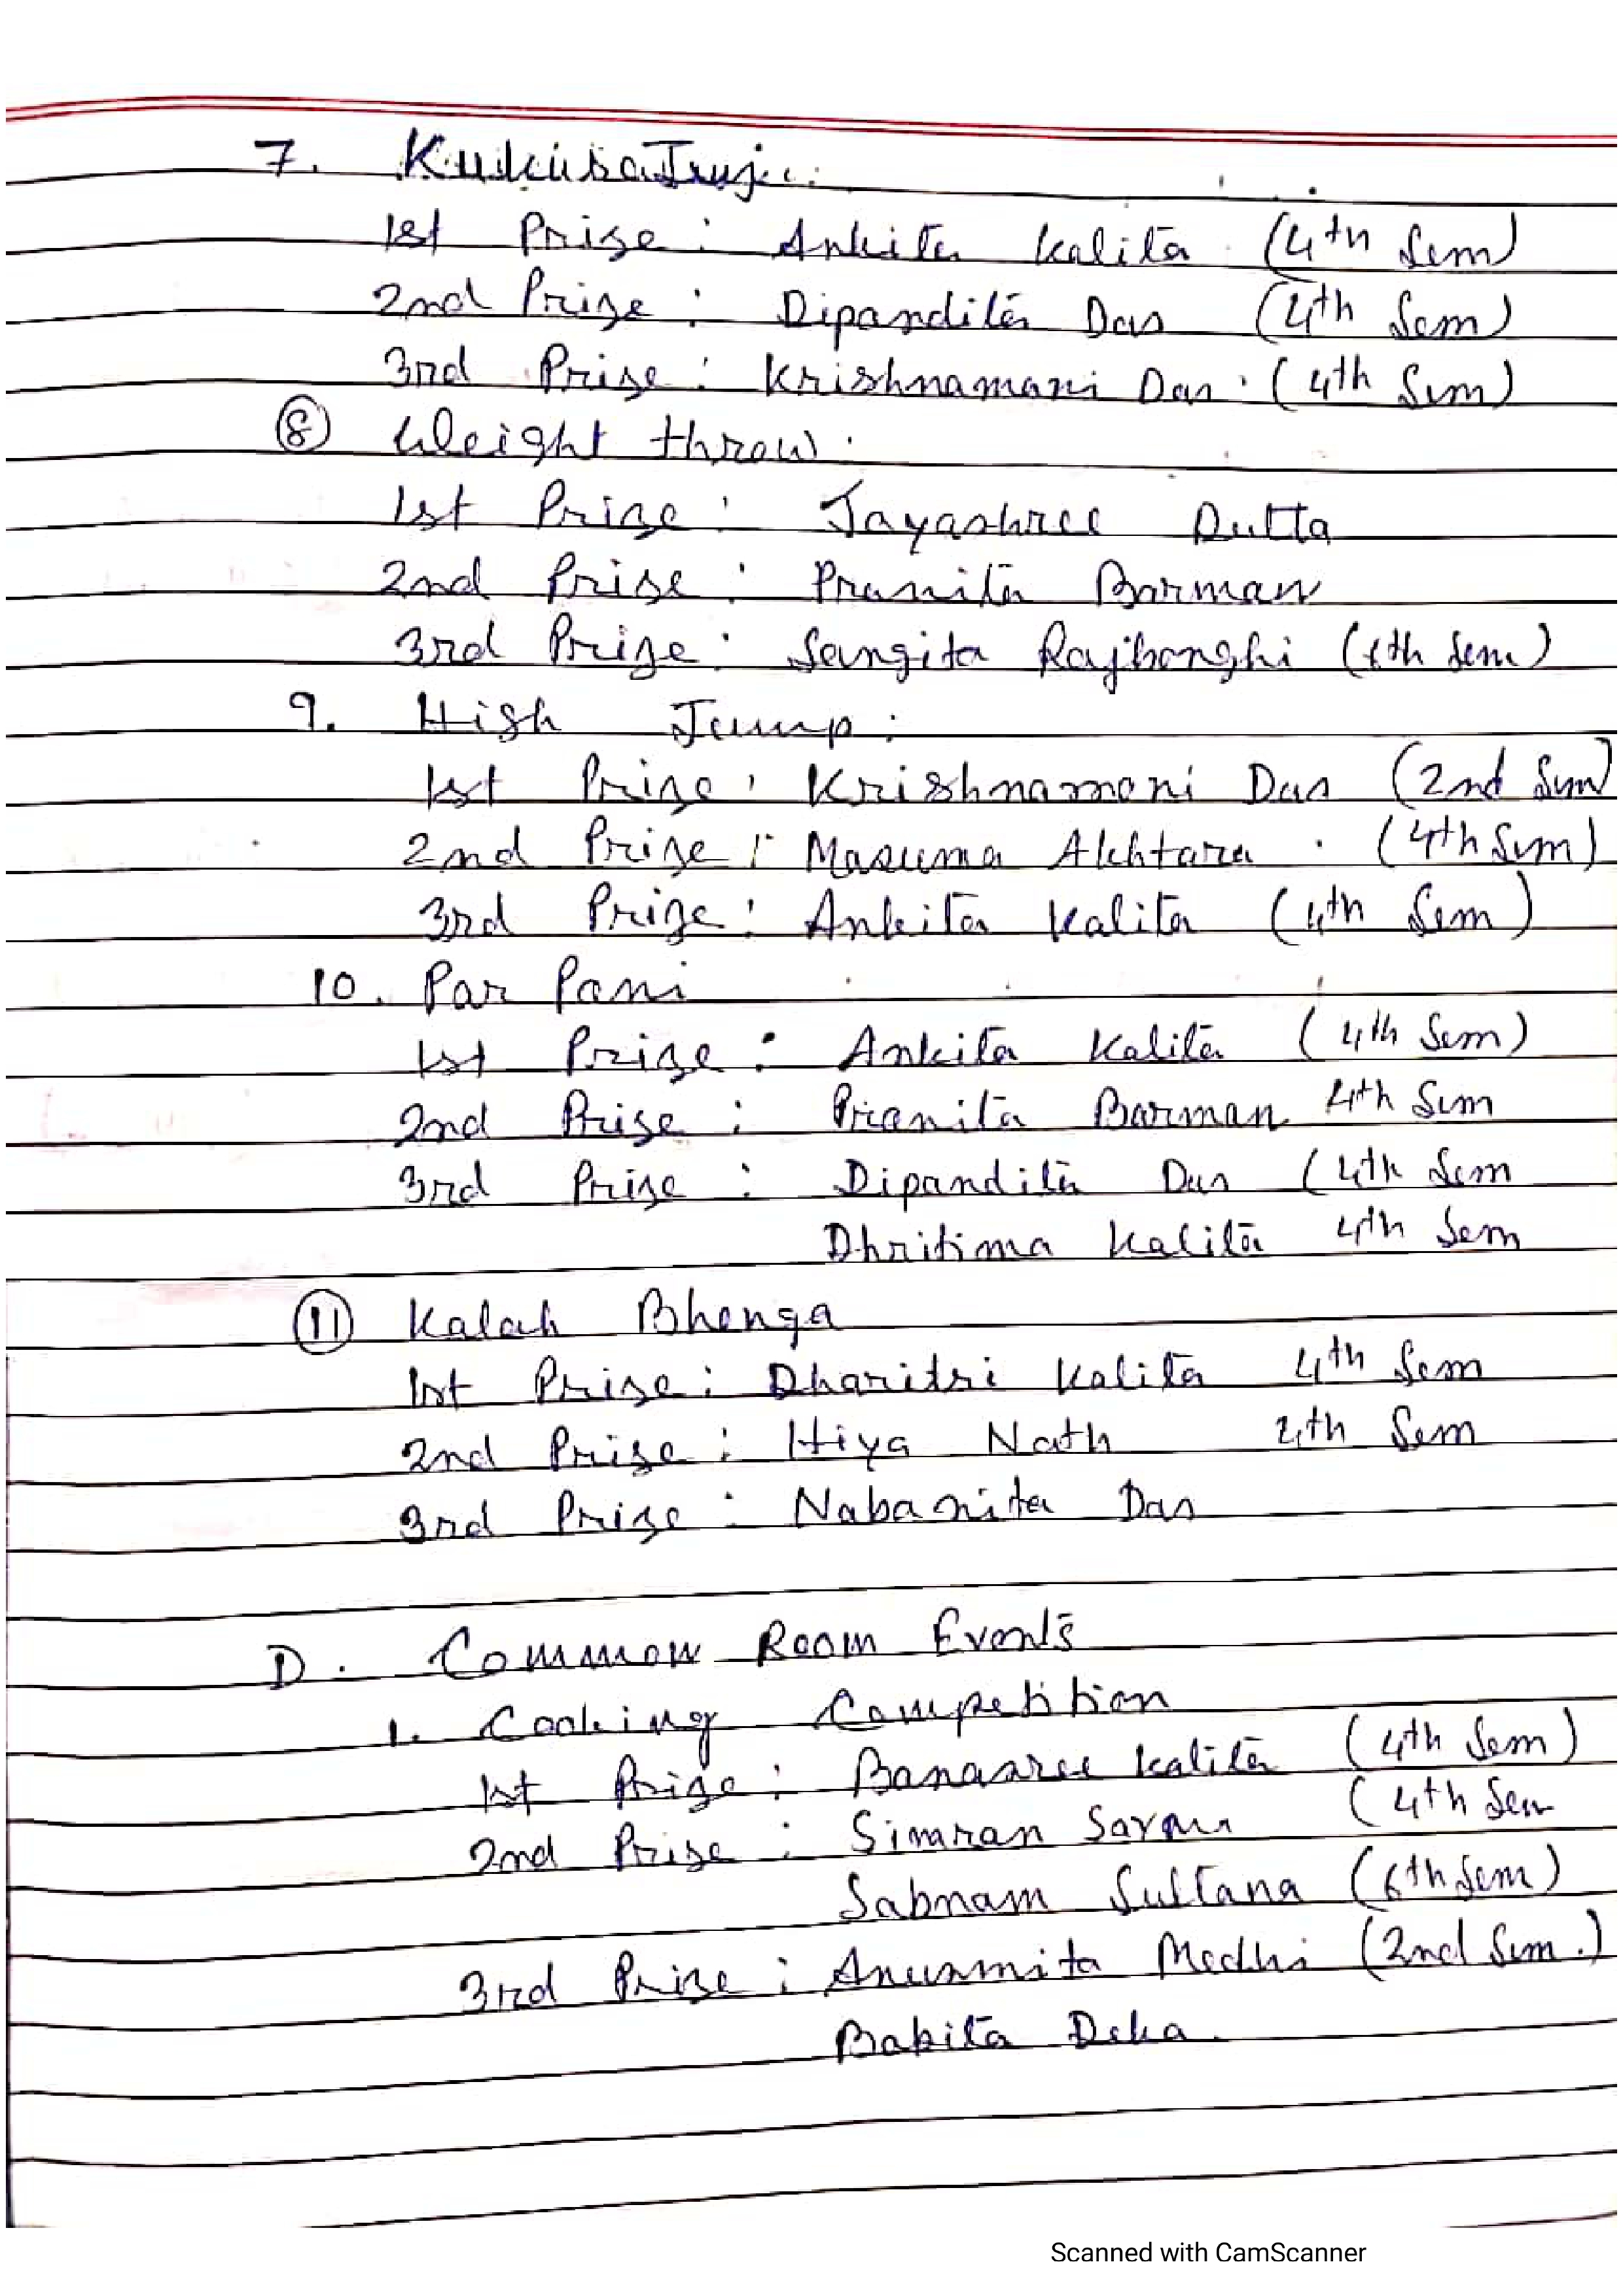 7. KukuraJuj:
1st Prize : Ankita Kalita (4th Sem)
2nd Prize : Dipandita Das (4th Sem)
3rd Prize : Krishnamani Das (4th Sem)
8 Weight throw
1st Prize : Jayashree Dutta
2nd Prize : Pranita Barman
3rd Prize : Sangita Rajbonghi (6th Sem)
9. High Jump :
1st Prize : Krishnamoni Das (2nd Sem)
2nd Prize : Masuma Akhtara (4th Sem)
3rd Prize : Ankita Kalita (4th Sem)
10. Par Pani
1st Prize : Ankita Kalita (4th Sem)
2nd Prize : Pranita Barman 4th Sem
3rd Prize : Dipandita Das (4th Sem
Dhritima Kalita 4th Sem
11 Kalah Bhenga
1st Prize : Dharitri Kalita 4th Sem
2nd Prize : Hiya Nath 4th Sem
3rd Prize : Nabanita Das
D. Common Room Events
1. Cooking Competition
1st Prize : Banasree Kalita (4th Sem)
2nd Prize : Simran (4th Sem
Sabnam Sultana (6th Sem)
3rd Prize : Anusmita Medhi (2nd Sem.)
Babita Deka.
Scanned with CamScanner